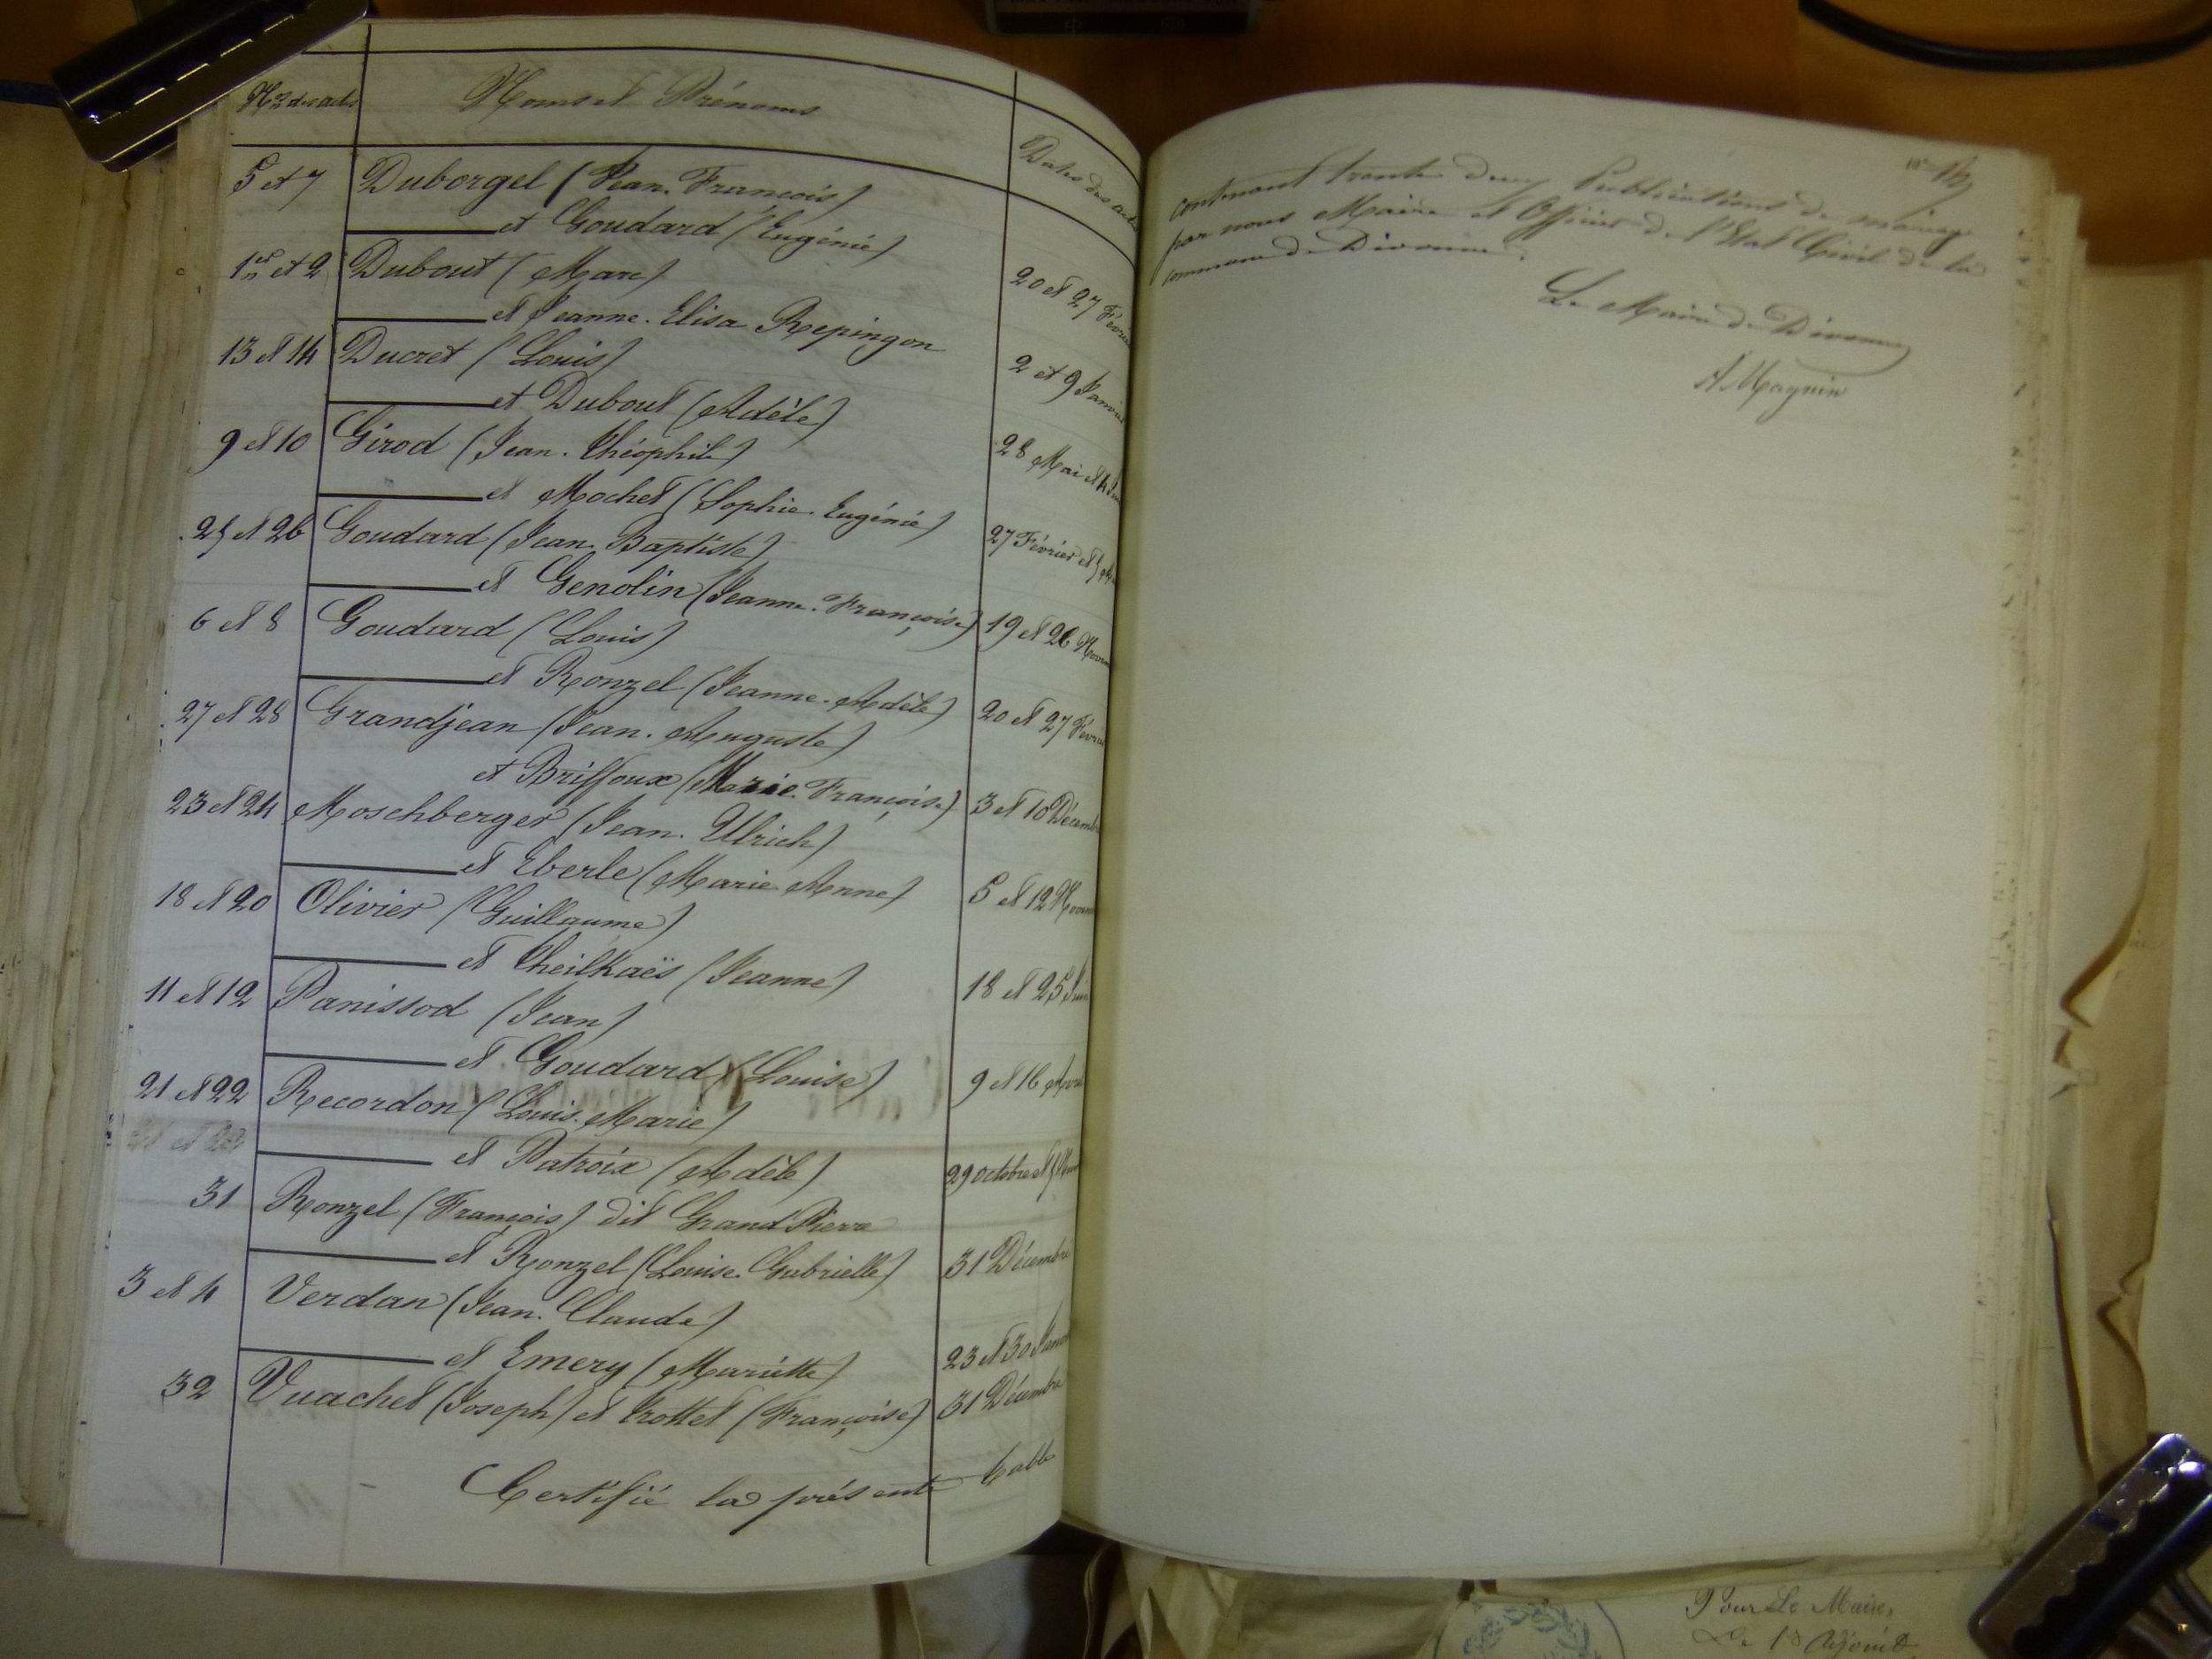 Nos des actes Noms et Prénoms Dates des actes
5 et 7 Duborgel (Jean. François)
et Goudard (Eugénie) 20 et 27 Février
1er et 2 Dubout (Marc)
et Jeanne. Elisa Repingon 2 et 9 Janvier
13 et 14 Ducret (Louis)
et Dubout (Adèle) 28 Mai et 4 Juin
9 et 10 Girod (Jean. Théophile)
et Mochet (Sophie. Eugénie) 27 Février et 5
25 et 26 Goudard (Jean. Baptiste)
et Genolin (Jeanne. Françoise) 19 et 26 Novem
6 et 8 Goudard (Louis)
et Ronzel (Jeanne. Adèle) 20 et 27 Févri
27 et 28 Grandjean (Jean. Auguste)
et Briffoux (Marie. Françoise) 3 et 10 Décembre
23 et 24 Moschberger (Jean. Ulrich)
et Eberle (Marie Anne) 5 et 12 Novem
18 et 20 Olivier (Guillaume)
et Theilkaës (Jeanne) 18 et 25 Juin
11 et 12 Panissod (Jean)
et Goudard (Louise) 9 et 16 Avril
21 et 22 Recordon (Louis. Marie)
et Patroix (Adèle) 29 octobre et 5
31 Ronzel (François) dit Grand Pierre
et Ronzel (Louise. Gabrielle) 31 Décembre
3 et 4 Verdan (Jean. Claude)
et Emery (Mariette) 23 et 30 Janvi
32 Vuachet (Joseph) et Trottet (Françoise) 31 Décembre
Certifié la présente table
contenant trente deux Publications de mariage
par nous Maire et Officier de l'Etat Civil de la
commune de Divonne.
Le Maire de Divonne
A Maynin
Pour Le Maire,
Le 1er Adjoint